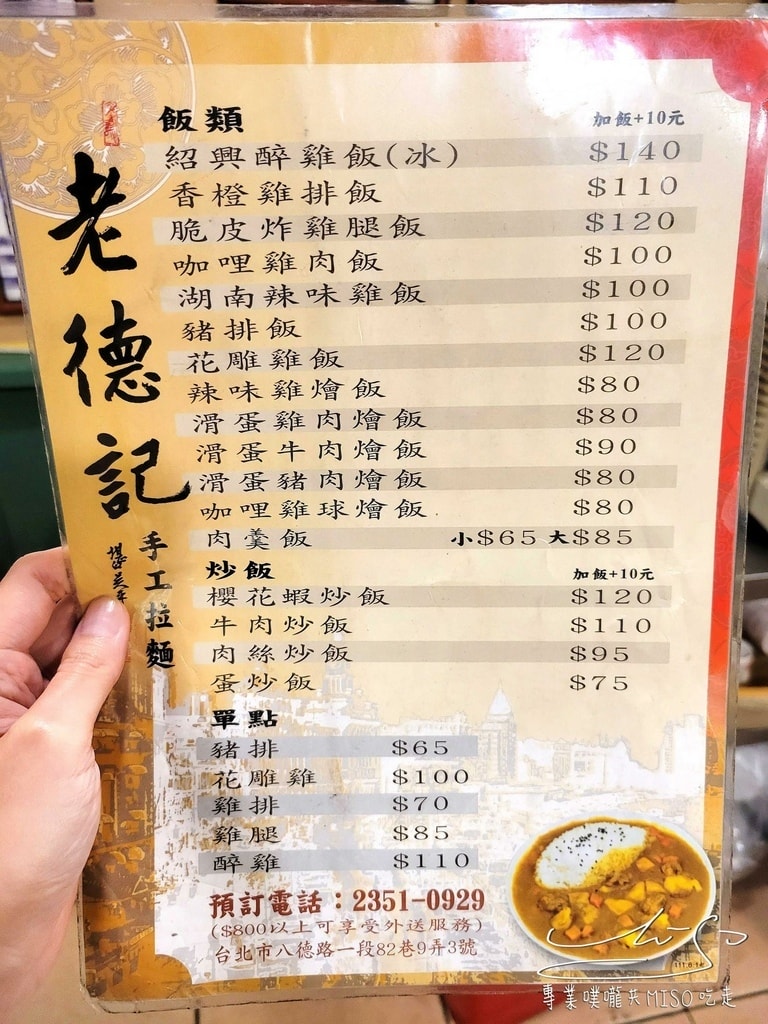 老德記
手工拉麵
飯類 加飯+10元
紹興醉雞飯(冰) $140
香橙雞排飯 $110
脆皮炸雞腿飯 $120
咖哩雞肉飯 $100
湖南辣味雞飯 $100
豬排飯 $100
花雕雞飯 $120
辣味雞燴飯 $80
滑蛋雞肉燴飯 $80
滑蛋牛肉燴飯 $90
滑蛋豬肉燴飯 $80
咖哩雞球燴飯 $80
肉羹飯 小$65 大$85
炒飯 加飯+10元
櫻花蝦炒飯 $120
牛肉炒飯 $110
肉絲炒飯 $95
蛋炒飯 $75
單點
豬排 $65
花雕雞 $100
雞排 $70
雞腿 $85
醉雞 $110
預訂電話：2351-0929
($800以上可享受外送服務)
台北市八德路一段82巷9弄3號
專業噗嚨共MISO吃走